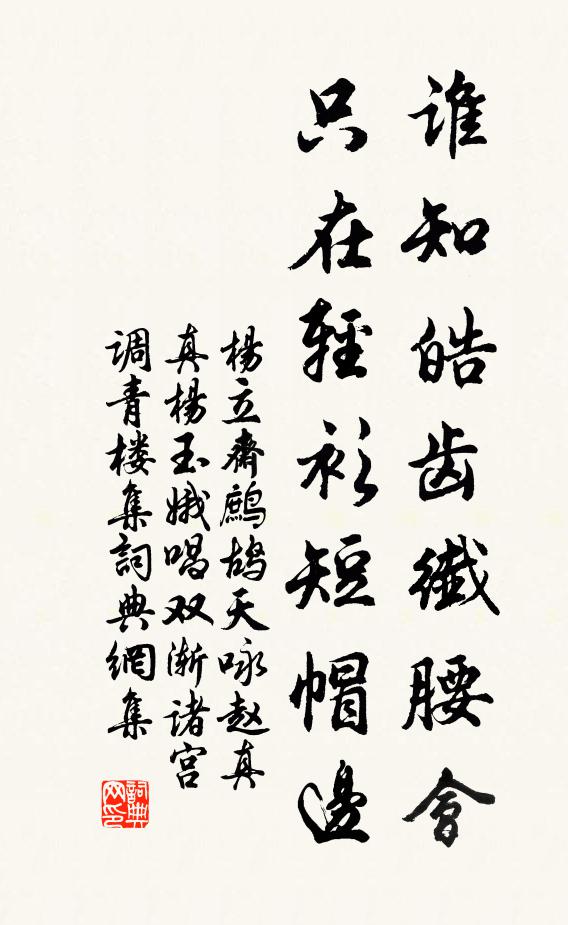 誰知皓齿纖腰會
只在輕衫短帽邊
楊立齋鷓鴣天咏赵真
真楊玉娥唱双渐诸宫
调青楼集詞典網集
詞典网印